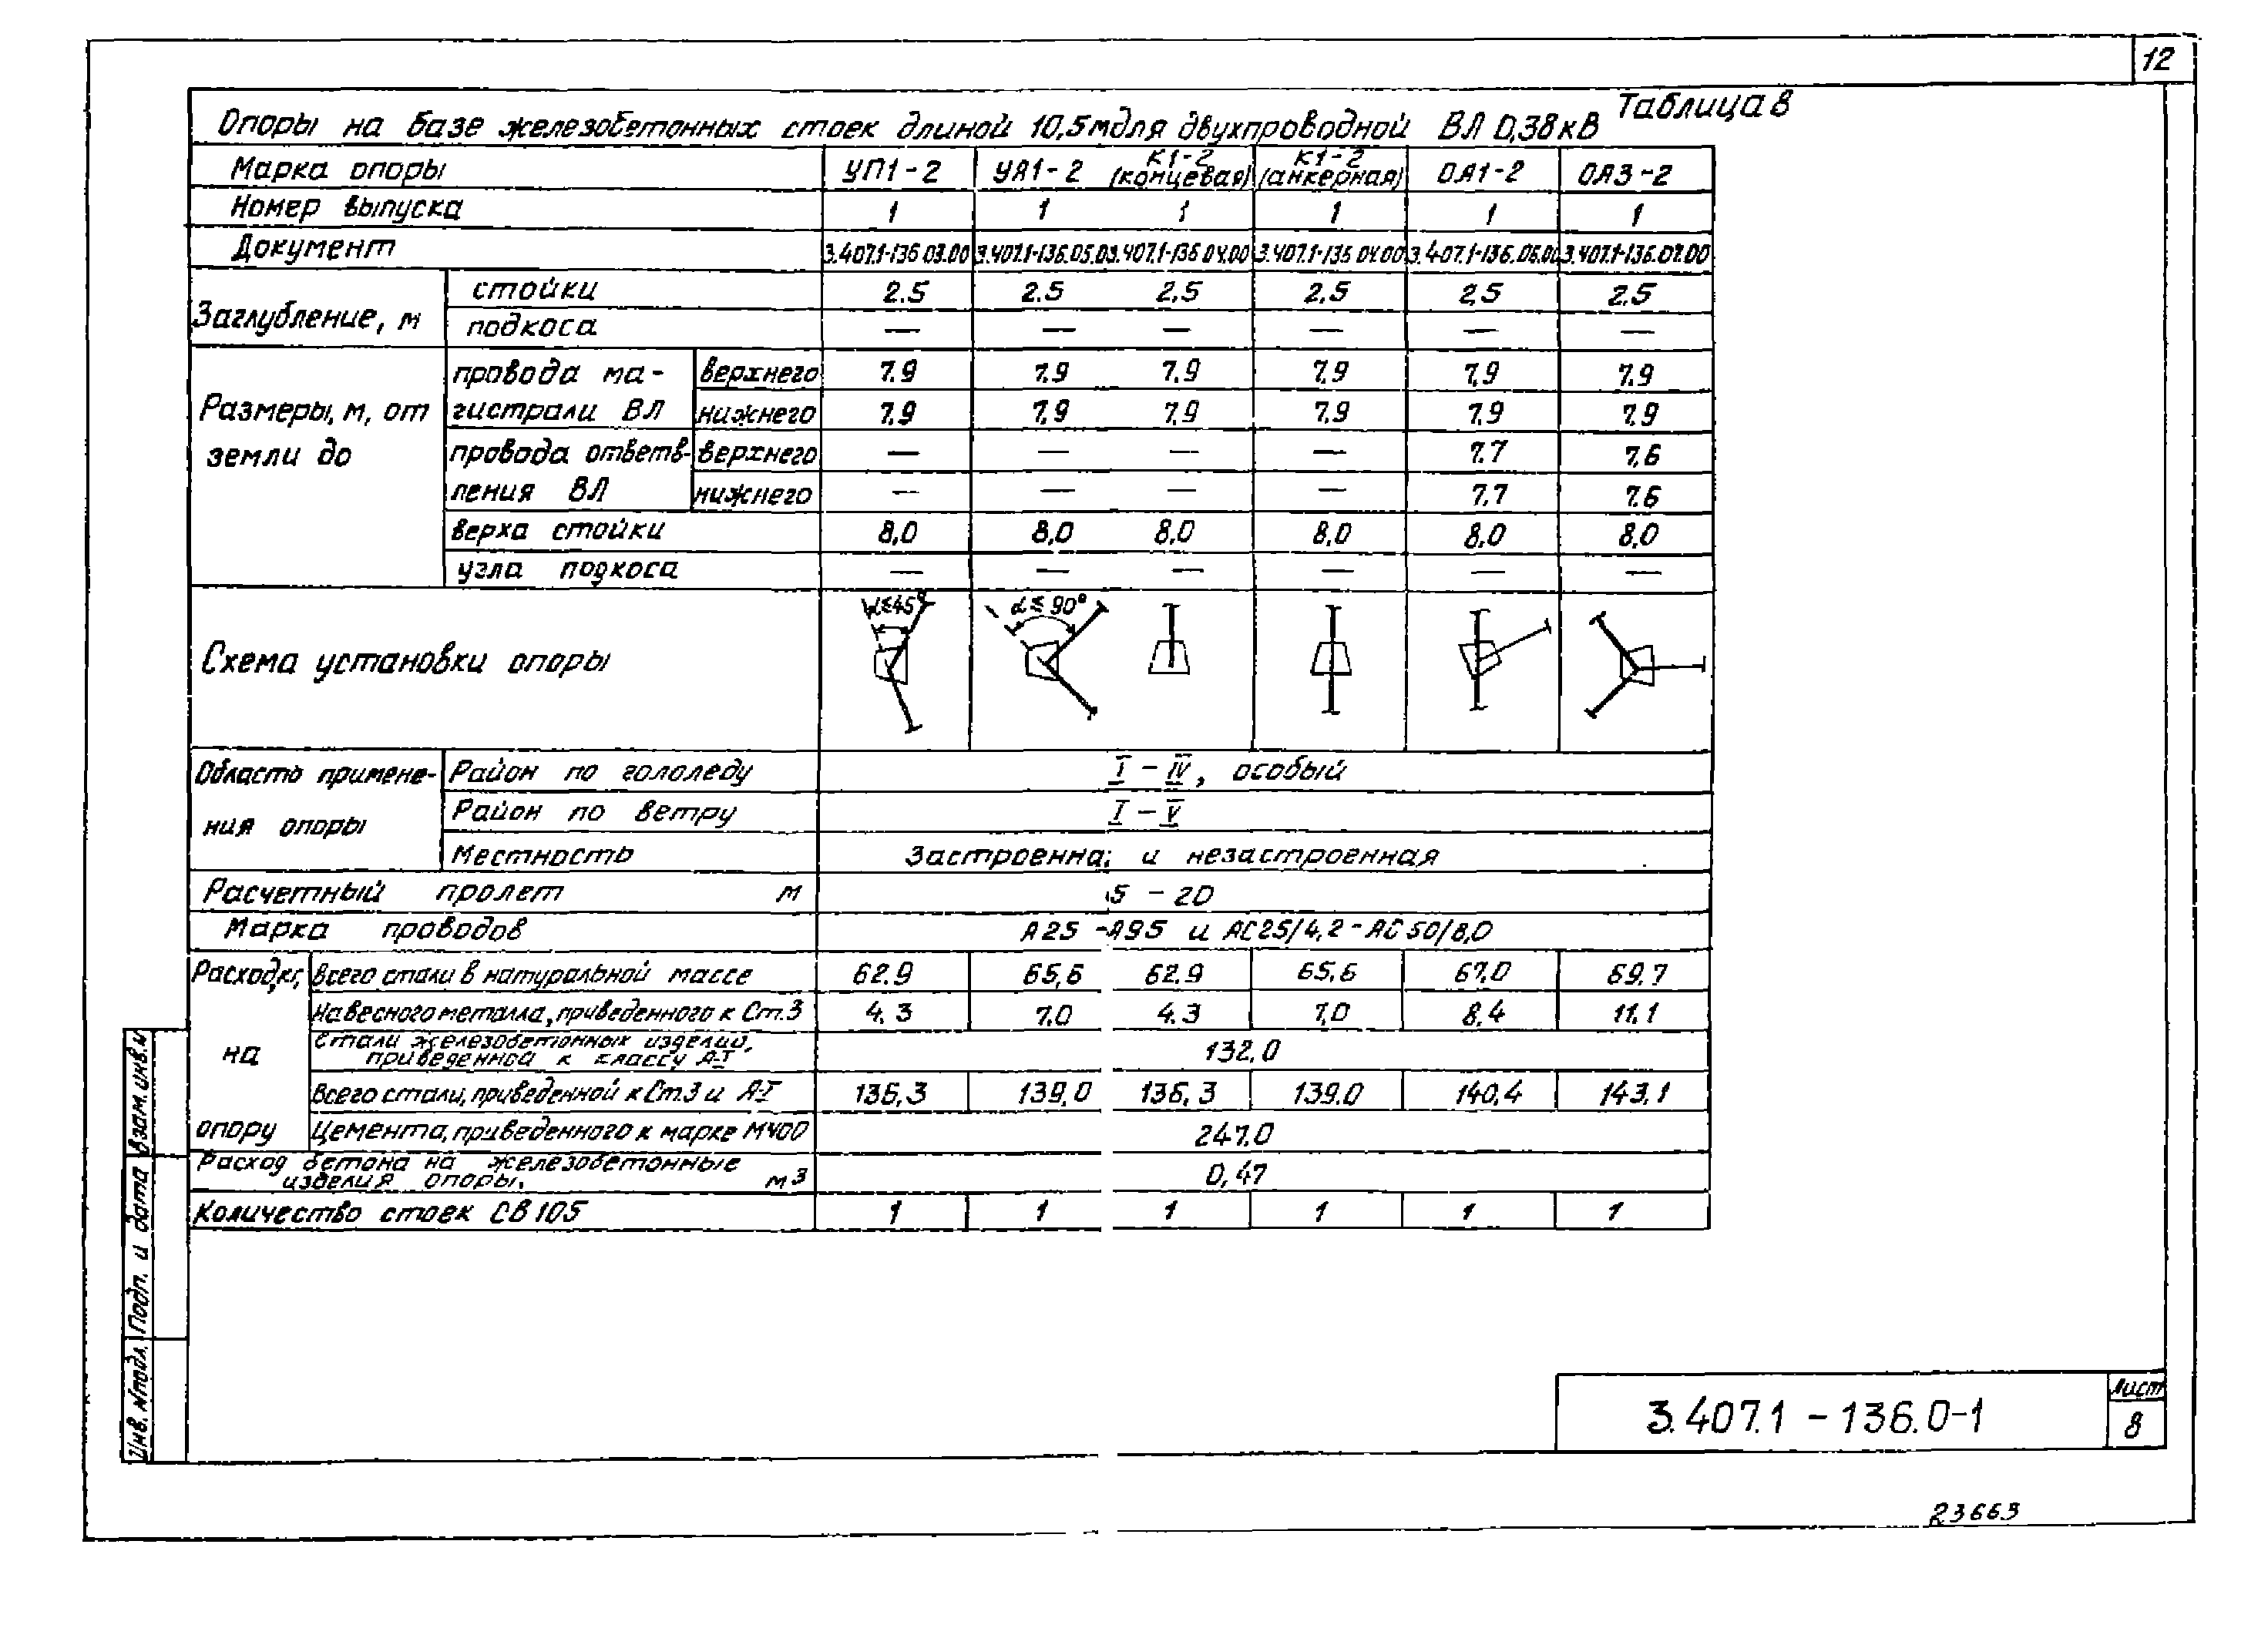 12
Таблица 8
Опоры на базе железобетонных стоек длиной 10,5м для двухпроводной ВЛ 0,38кВ
Марка опоры УП1-2 УА1-2 К1-2 (концевая) К1-2 (анкерная) ОА1-2 ОА3-2
Номер выпуска 1 1 1 1 1 1
Документ 3.407.1-136.03.00 3.407.1-136.05.0 3.407.1-136.04.00 3.407.1-136.04.00 3.407.1-136.06.00 3.407.1-136.07.00
Заглубление, м
стойки 2.5 2.5 2,5 2,5 2,5 2.5
подкоса — — — — — —
Размеры, м, от земли до
провода магистрали ВЛ
верхнего 7.9 7.9 7.9 7.9 7,9 7.9
нижнего 7.9 7.9 7.9 7.9 7.9 7.9
провода ответвления ВЛ
верхнего — — — — 7.7 7.6
нижнего — — — — 7.7 7.6
верха стойки 8,0 8,0 8,0 8,0 8,0 8,0
узла подкоса — — — — — —
Схема установки опоры
α≤45° α≤90°
Область применения опоры
Район по гололеду I - IV, особый
Район по ветру I - V
Местность Застроенна; и незастроенная
Расчетный пролет м 5 - 20
Марка проводов А25 - А95 и АС25/4,2 - АС50/8,0
Расход, кг, на опору
Всего стали в натуральной массе 62.9 65,6 62.9 65,6 67.0 69.7
Навесного металла, приведенного к Ст.3 4.3 7.0 4.3 7,0 8,4 11.1
Стали железобетонных изделий, приведенной к классу А-I 132.0
Всего стали, приведенной к Ст.3 и А-I 136,3 139,0 136,3 139.0 140,4 143,1
Цемента, приведенного к марке М400 247.0
Расход бетона на железобетонные изделия опоры, м3 0,47
Количество стоек СВ105 1 1 1 1 1 1
Инв. №подл. Подп. и дата Взам. инв.№
3.407.1 - 136.0-1
Лист
8
23663